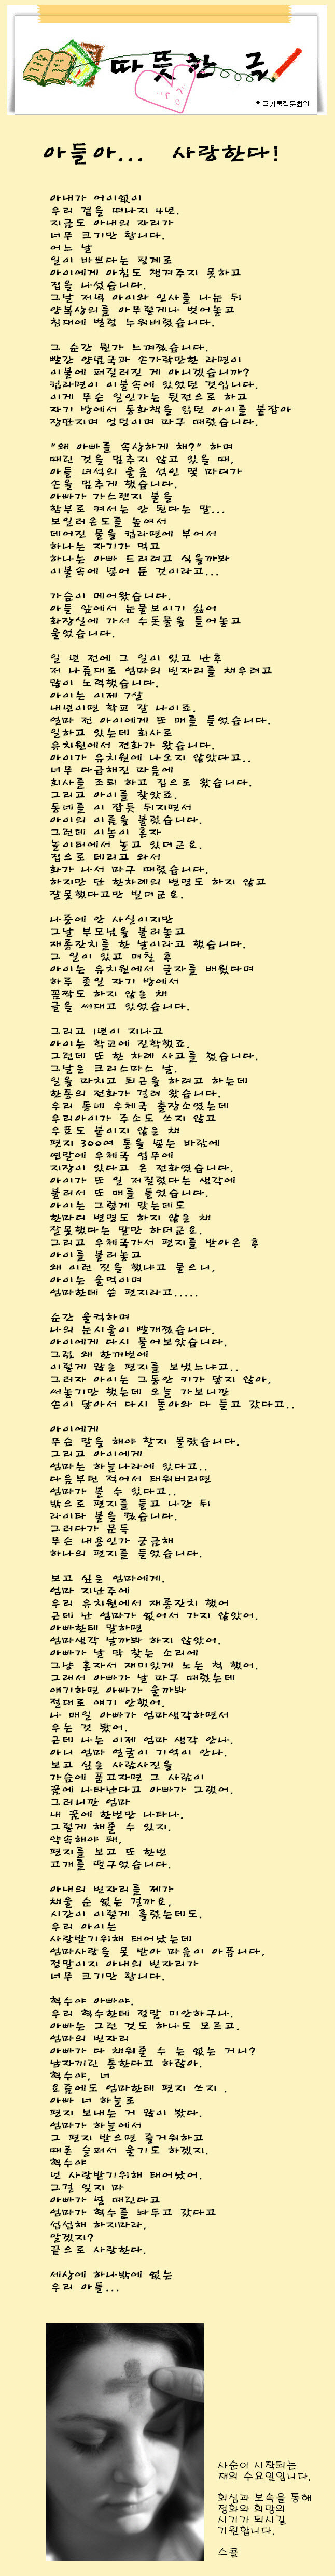 따뜻한 글
한국가톨릭문화원
아들아... 사랑한다!
아내가 어이없이
우리 곁을 떠나지 4년.
지금도 아내의 자리가
너무 크기만 합니다.
어느 날
일이 바쁘다는 핑계로
아이에게 아침도 챙겨주지 못하고
집을 나섰습니다.
그날 저녁 아이와 인사를 나눈 뒤
양복상의를 아무렇게나 벗어놓고
침대에 벌렁 누워버렸습니다.
그 순간 뭔가 느껴졌습니다.
빨간 양념국과 손가락만한 라면이
이불에 퍼질러진 게 아니겠습니까?
컵라면이 이불속에 있었던 것입니다.
이게 무슨 일인가는 뒷전으로 하고
자기 방에서 동화책을 읽던 아이를 붙잡아
장딴지며 엉덩이며 마구 때렸습니다.
"왜 아빠를 속상하게 해?" 하며
때린 것을 멈추지 않고 있을 때,
아들 녀석의 울음 섞인 몇 마디가
손을 멈추게 했습니다.
아빠가 가스렌지 불을
함부로 켜서는 안 된다는 말...
보일러온도를 높여서
데어진 물을 컵라면에 부어서
하나는 자기가 먹고
하나는 아빠 드리려고 식을까봐
이불속에 넣어 둔 것이라고...
가슴이 메어왔습니다.
아들 앞에서 눈물보이기 싫어
화장실에 가서 수돗물을 틀어놓고
울었습니다.
일 년 전에 그 일이 있고 난후
저 나름대로 엄마의 빈자리를 채우려고
많이 노력했습니다.
아이는 이제 7살
내년이면 학교 갈 나이죠.
얼마 전 아이에게 또 매를 들었습니다.
일하고 있는데 회사로
유치원에서 전화가 왔습니다.
아이가 유치원에 나오지 않았다고..
너무 다급해진 마음에
회사를 조퇴 하고 집으로 왔습니다.
그리고 아이를 찾았죠.
동네를 이 잡듯 뒤지면서
아이의 이름을 불렀습니다.
그런데 이놈이 혼자
놀이터에서 놀고 있더군요.
집으로 데리고 와서
화가 나서 마구 때렸습니다.
하지만 단 한차례의 변명도 하지 않고
잘못했다고만 빌더군요.
나중에 안 사실이지만
그날 부모님을 불러놓고
재롱잔치를 한 날이라고 했습니다.
그 일이 있고 며칠 후
아이는 유치원에서 글자를 배웠다며
하루 종일 자기 방에서
꼼짝도 하지 않은 채
글을 써대고 있었습니다.
그리고 1년이 지나고
아이는 학교에 진학했죠.
그런데 또 한 차례 사고를 쳤습니다.
그날은 크리스마스 날.
일을 마치고 퇴근을 하려고 하는데
한통의 전화가 걸려 왔습니다.
우리 동네 우체국 출장소였는데
우리아이가 주소도 쓰지 않고
우표도 붙이지 않은 채
편지 300여 통을 넣는 바람에
연말에 우체국 업무에
지장이 있다고 온 전화였습니다.
아이가 또 일 저질렀다는 생각에
불러서 또 매를 들었습니다.
아이는 그렇게 맞는데도
한마디 변명도 하지 않은 채
잘못했다는 말만 하더군요.
그리고 우체국가서 편지를 받아온 후
아이를 불러놓고
왜 이런 짓을 했냐고 물으니,
아이는 울먹이며
엄마한테 쓴 편지라고.....
순간 울컥하며
나의 눈시울이 빨개졌습니다.
아이에게 다시 물어보았습니다.
그럼 왜 한꺼번에
이렇게 많은 편지를 보냈느냐고..
그러자 아이는 그동안 키가 닿지 않아,
써놓기만 했는데 오늘 가보니깐
손이 닿아서 다시 돌아와 다 들고 갔다고..
아이에게
무슨 말을 해야 할지 몰랐습니다.
그리고 아이에게
엄마는 하늘나라에 있다고..
다음부턴 적어서 태워버리면
엄마가 볼 수 있다고..
밖으로 편지를 들고 나간 뒤
라이타 불을 켰습니다.
그러다가 문득
무슨 내용인가 궁금해
하나의 편지를 들었습니다.
보고 싶은 엄마에게.
엄마 지난주에
우리 유치원에서 재롱잔치 했어
근데 난 엄마가 없어서 가지 않았어.
아빠한테 말하면
엄마생각 날까봐 하지 않았어.
아빠가 날 막 찾는 소리에
그냥 혼자서 재미있게 노는 척 했어.
그래서 아빠가 날 마구 때렸는데
얘기하면 아빠가 울까봐
절대로 얘기 안했어.
나 매일 아빠가 엄마생각하면서
우는 것 봤어.
근데 나는 이제 엄마 생각 안나.
아니 엄마 얼굴이 기억이 안나.
보고 싶은 사람사진을
가슴에 품고자면 그 사람이
꿈에 나타난다고 아빠가 그랬어.
그러니깐 엄마
내 꿈에 한번만 나타나.
그렇게 해줄 수 있지.
약속해야 돼,
편지를 보고 또 한번
고개를 떨구었습니다.
아내의 빈자리를 제가
채울 순 없는 걸까요,
시간이 이렇게 흘렀는데도.
우리 아이는
사랑받기위해 태어났는데
엄마사랑을 못 받아 마음이 아픕니다,
정말이지 아내의 빈자리가
너무 크기만 합니다.
혁수야 아빠야.
우리 혁수한테 정말 미안하구나.
아빠는 그런 것도 하나도 모르고.
엄마의 빈자리
아빠가 다 채워줄 수 는 없는 거니?
남자끼린 통한다고 하잖아.
혁수야, 너
요즘에도 엄마한테 편지 쓰지 .
아빠 너 하늘로
편지 보내는 거 많이 봤다.
엄마가 하늘에서
그 편지 받으면 즐거워하고
때론 슬퍼서 울기도 하겠지.
혁수야
넌 사랑받기위해 태어났어.
그걸 잊지 마
아빠가 널 때린다고
엄마가 혁수를 놔두고 갔다고
섭섭해 하지마라,
알겠지?
끝으로 사랑한다.
세상에 하나밖에 없는
우리 아들...
사순이 시작되는
재의 수요일입니다.
회심과 보속을 통해
정화와 희망의
시기가 되시길
기원합니다.
스콜